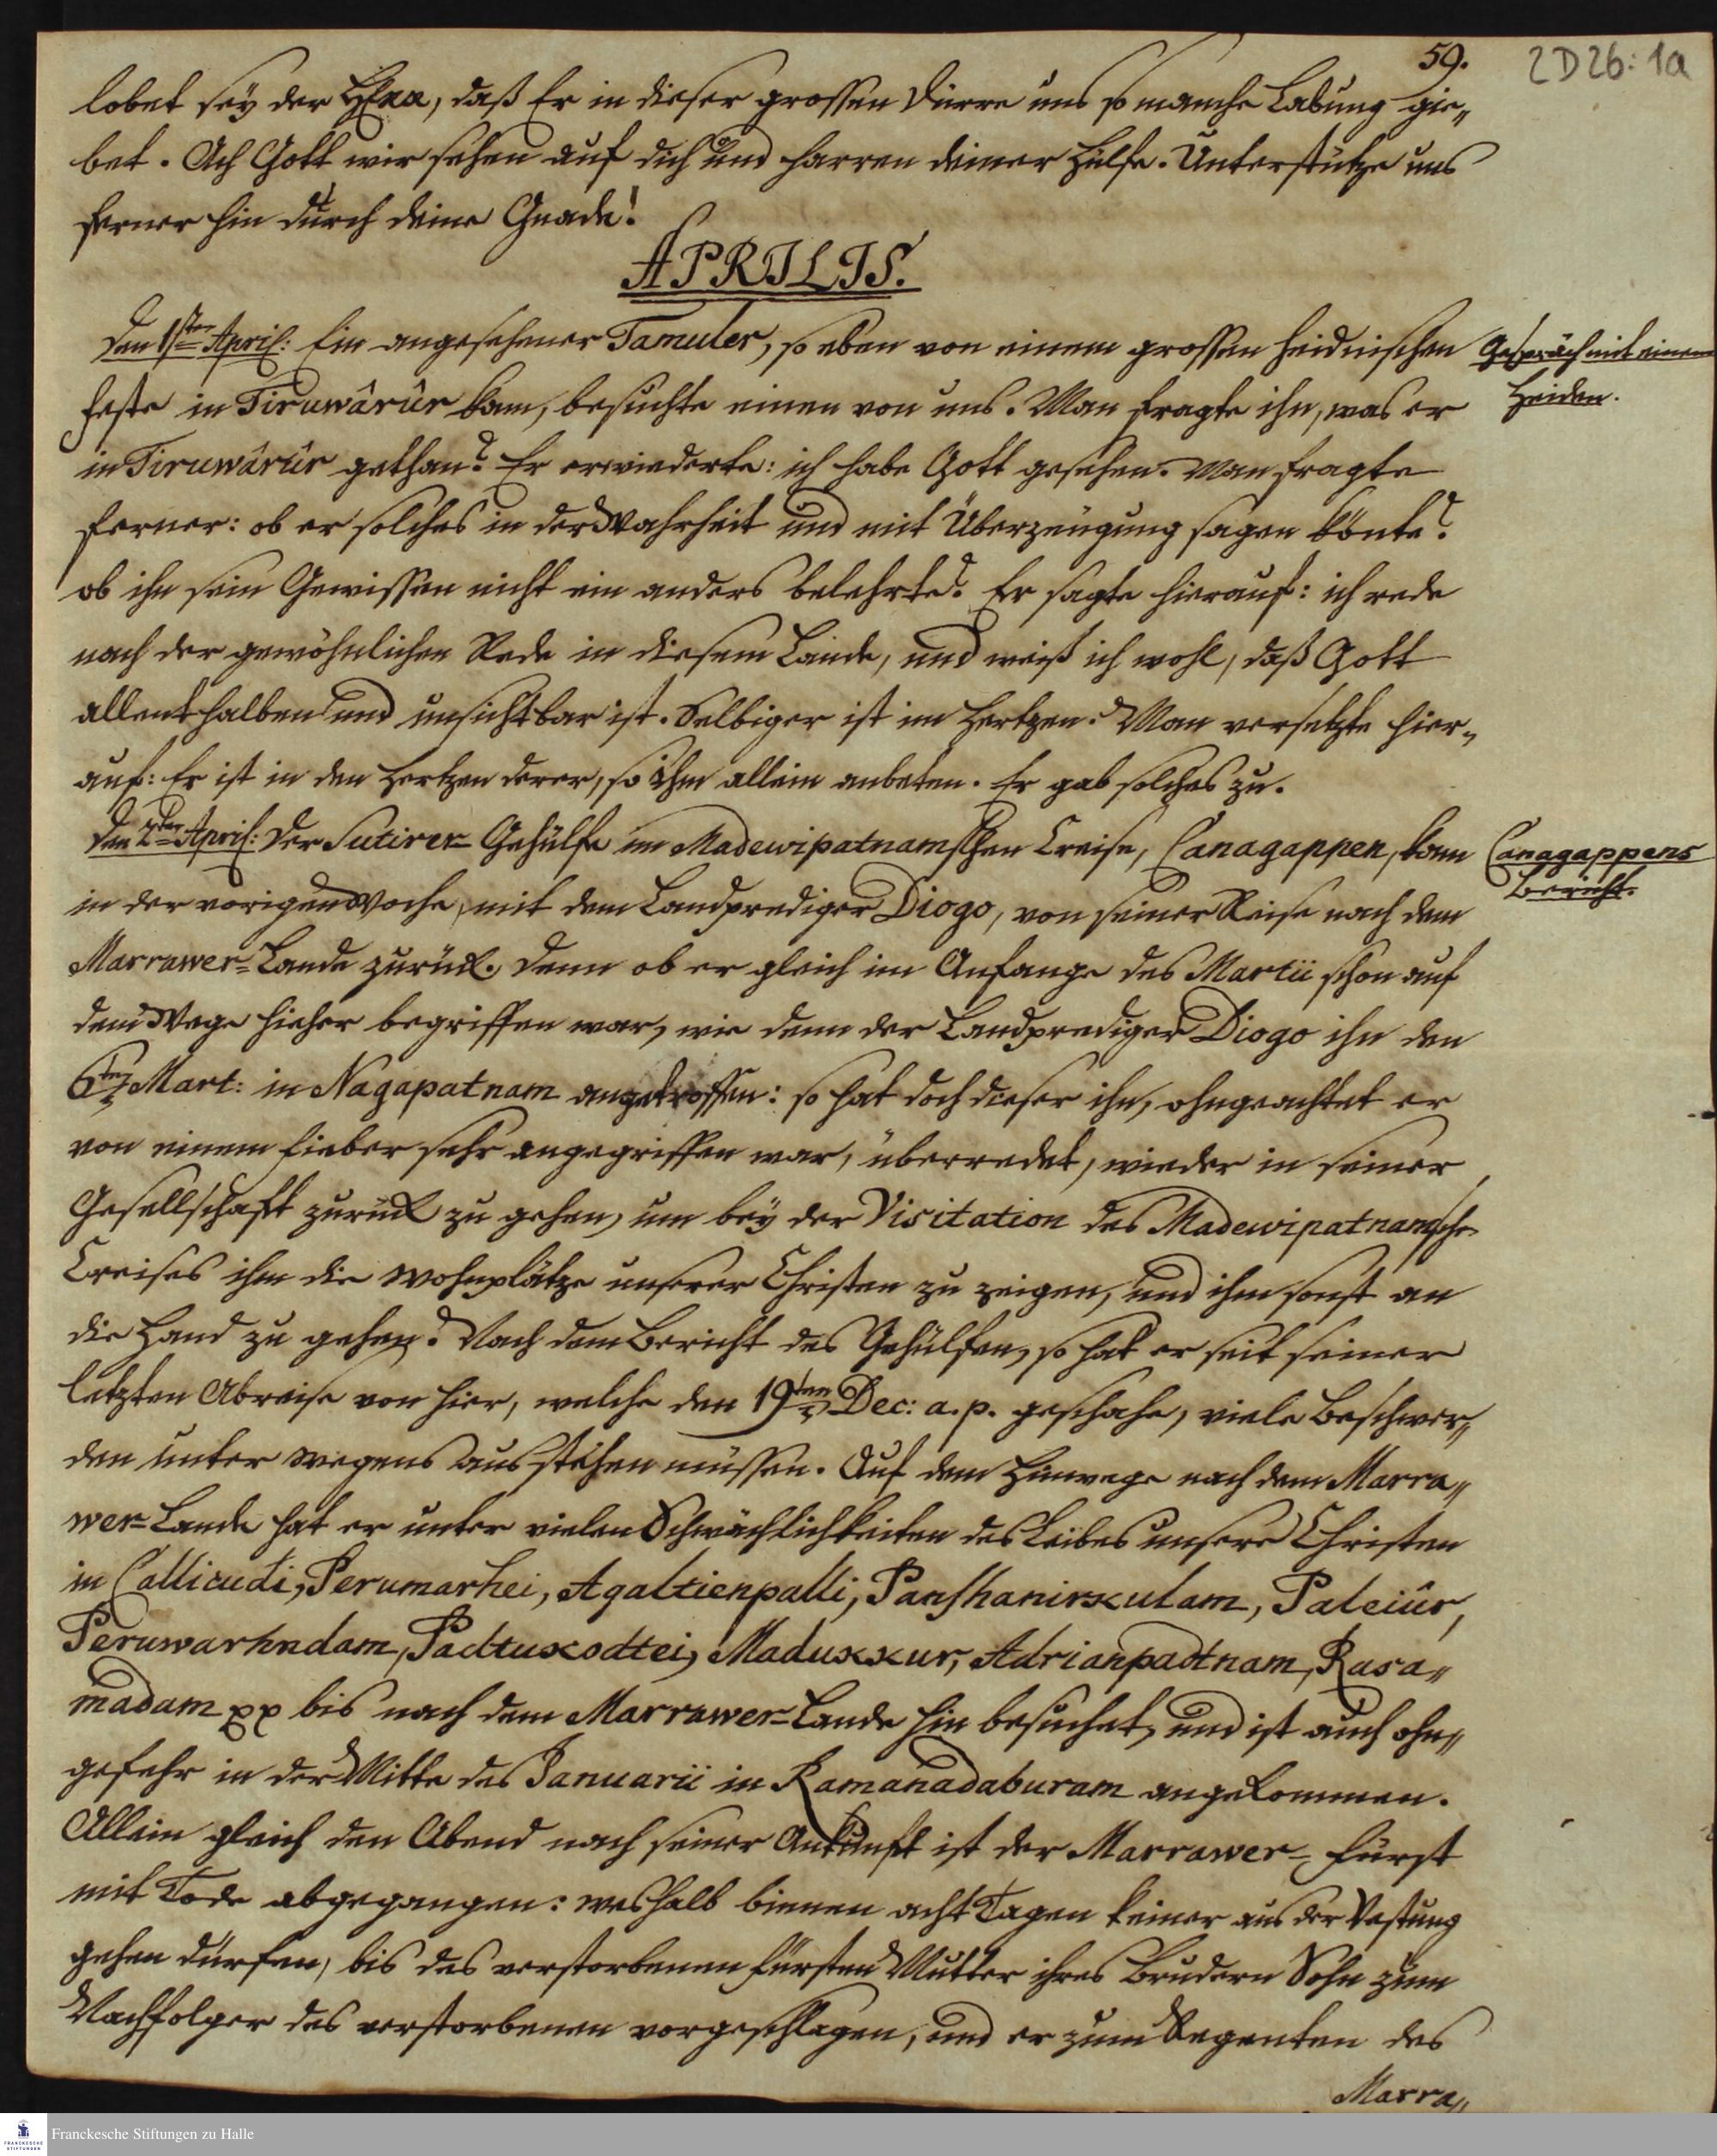 59.
2D26:1a
lobet sey der HErr, daß Er in dieser grossen Dürre uns so manche Labung gie„
bet. Ach Gott wir sehen auf dich und harren deiner Hülfe. Unterstütze uns
ferner hin durch deine Gnade!
APRILIS.
Den 1sten April: Ein angesehener Tamuler, so eben von einem grossen heidnischen
Feste in Tiruwârûr kam, besuchte einen von uns. Man fragte ihn, was er
in Tiruwârûr gethan? Er erwiederte: ich habe Gott gesehen. Man fragte
ferner: ob er solches in der Wahrheit und mit Überzeugung sagen könte?
ob ihn sein Gewissen nicht ein anders belehrte? Er sagte hierauf: ich rede
nach der gewöhnlichen Rede in diesem Lande, und weiß ich wohl, daß Gott
allenthalben und unsichtbar ist. Selbiger ist im Hertzen. Man versetzte hier„
auf: Er ist in den Hertzen derer, so ihm allein anbeten. Er gab solches zu.
Gespräch mit einem
Heiden.
Den 2ten April: Der Sutirer-Gehülfe im Madewipatnamschen Creise, Canagappen, kam
in der vorigen Woche, mit dem Landprediger Diogo, von seiner Reise nach dem
Marrawer-Lande zurück. Denn ob er gleich im Anfange des Martii schon auf
dem Wege hieher begriffen war, wie denn der Landprediger Diogo ihn den
6ten Mart: in Nagapatnam angetroffen: so hat doch dieser ihn, ohngeachtet er
von einem Fieber sehr angegriffen war, überredet, wieder in seiner
Gesellschaft zurück zu gehen, um bey der Visitation des Madewipatnamsche
Creises ihm die Wohnplätze unserer Christen zu zeigen, und ihm sonst an
die Hand zu gehen. Nach dem Bericht des Gehülfen, so hat er seit seiner
letzten Abreise von hier, welche den 19ten Dec: a. p. geschahe, viele Beschwer„
den unter wegens ausstehen müssen. Auf dem Hinwege nach dem Marra„
wer-Lande hat er unter vielen Schwächlichkeiten des Leibes unsere Christen
in Callicudi, Perumarhei, Agaltienpalli, Panshanirxulam, Paleiûr,
Peruwarhndam, Padtuxodtei, Maduxxur, Adrianpadtnam, Rasa„
madam pp bis nach dem Marrawer-Lande hin besuchet, und ist auch ohn„
gefehr in der Mitte des Januarii in Ramanadaburam angekommen.
Allein gleich den Abend nach seiner Ankunft ist der Marrawer-Fürst
mit Tode abgegangen: weshalb binnen acht Tagen keiner aus der Vestung
gehen dürfen, bis des verstorbenen Fürsten Mutter ihres Brudern Sohn zum
Nachfolger des verstorbenen vorgeschlagen, und er zum Regenten des
Marra„
Canagappens
Bericht.
FRANCKESCHE STIFTUNGEN
Franckesche Stiftungen zu Halle